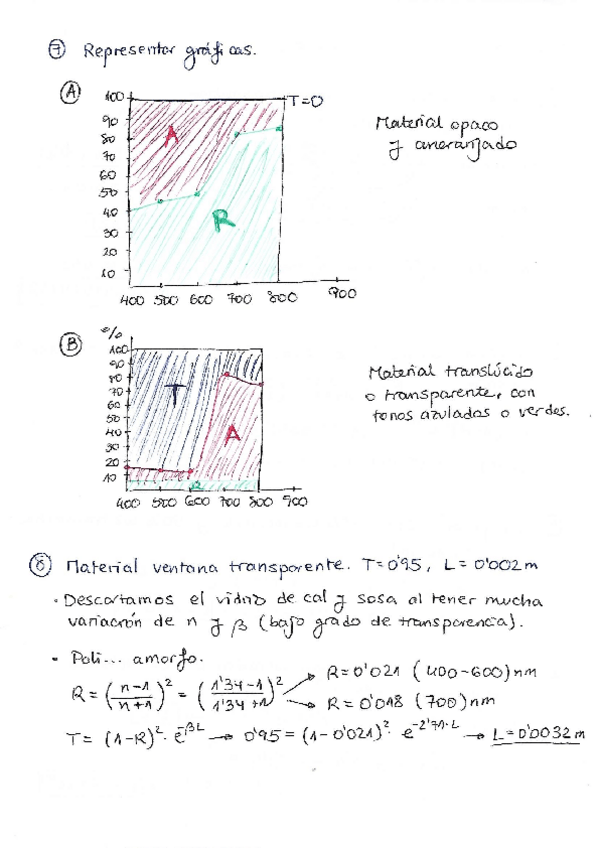 ⑦ Representar gráficas.
Ⓐ
100
90
80
70
60
50
40
30
20
10
400 500 600 700 800 900
T=0
A
R
Material opaco
y anaranjado
Ⓑ
%
100
90
80
70
60
50
40
30
20
10
400 500 600 700 800 900
T
A
R
Material translúcido
o transparente, con
tonos azulados o verdes.
⑧ Material ventana transparente. T=0'95, L=0'002m
· Descartamos el vidrio de cal y sosa al tener mucha
variación de n y β (bajo grado de transparencia).
· Poli... amorfo.
R = (n-1/n+1)² = (1'34-1/1'34+1)²
R=0'021 (400-600)nm
R=0'018 (700)nm
T= (1-R)²· e^-βL → 0'95 = (1-0'021)²· e^-2'71·L → L=0'0032m